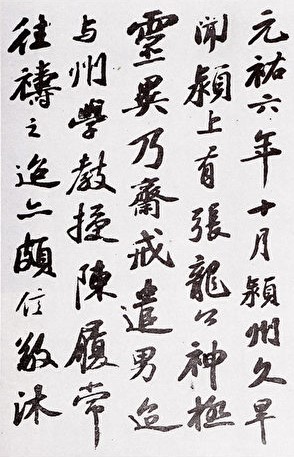 元祐六年十月潁州久旱
聞潁上有張龍公神極
靈異乃齋戒遣男迨
与州學教授陳履常
往禱之迨亦頗信敬沐